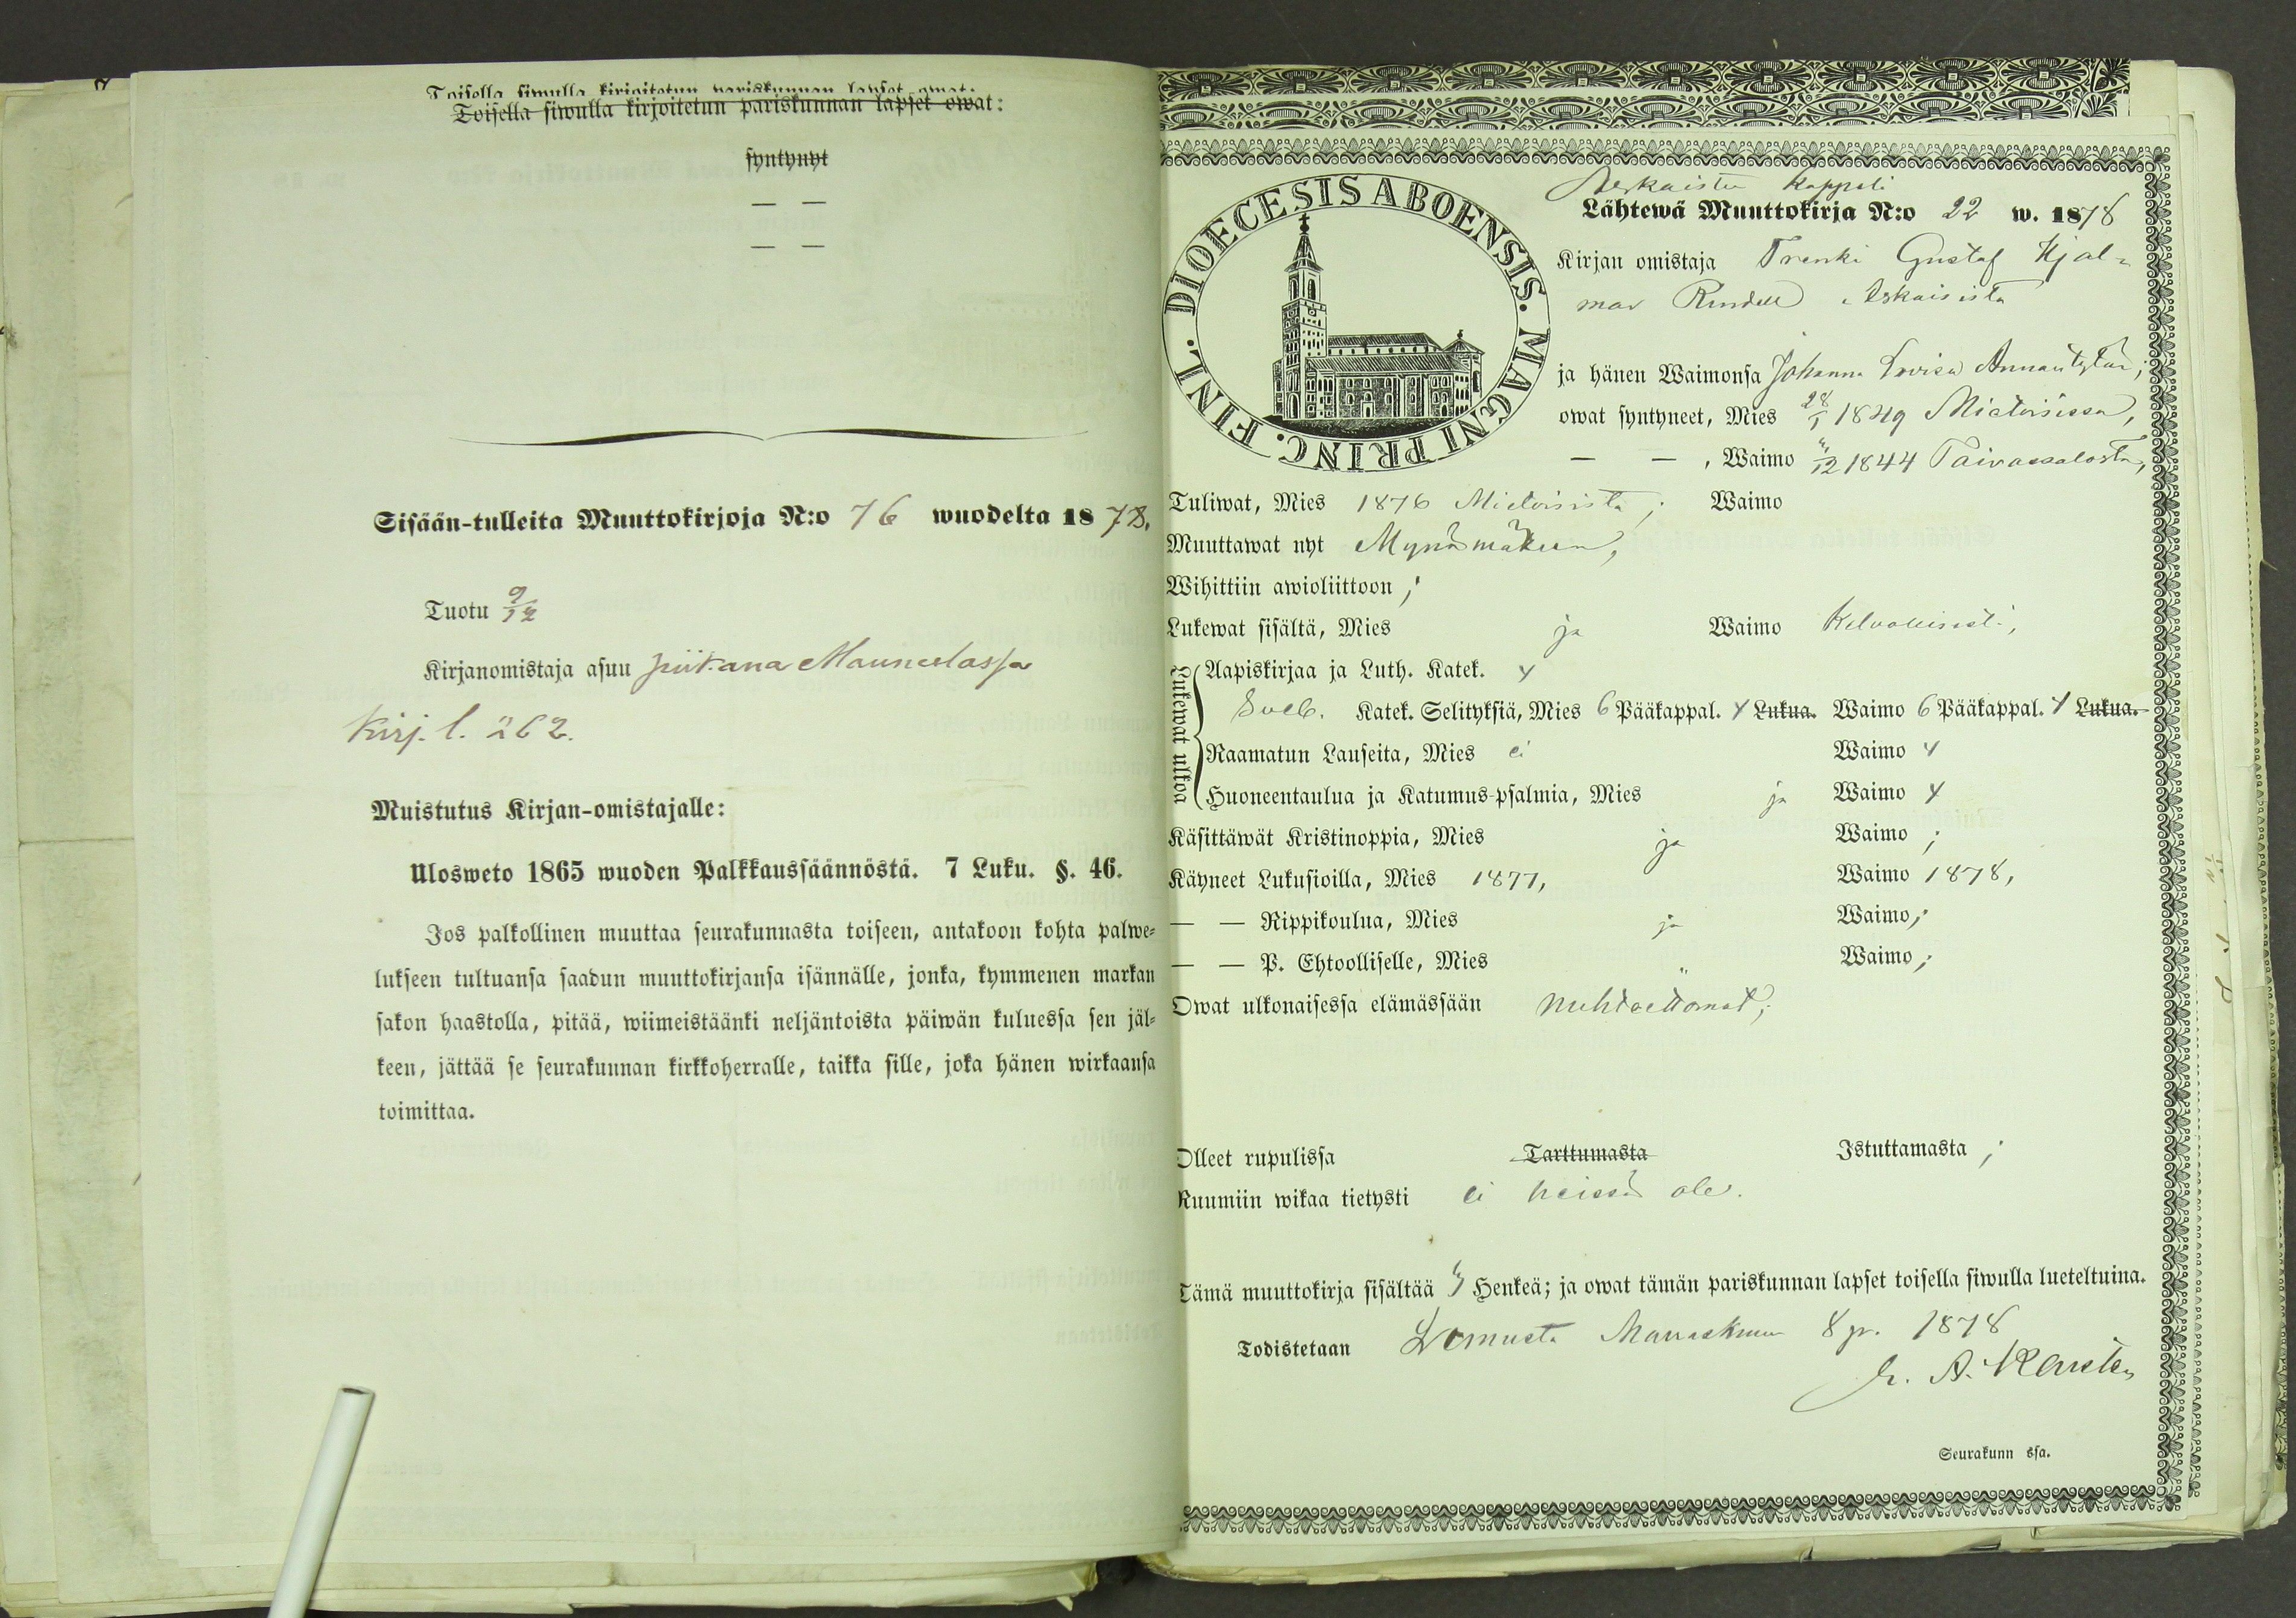 Toisella siwulla kirjoitetun pariskunnan lapset owat:
Toisella siwulla kirjoitetun pariskunnan lapset owat:
syntynyt
— —
— —
Sisään-tulleita Muuttokirjoja N:o 76 wuodelta 1878.
Tuotu 9/12
Kirjanomistaja asuu piikana Maunulassa
Kirj. l. 262.
Muistutus Kirjan-omistajalle:
Ulosweto 1865 wuoden Palkkaussäännöstä. 7 Luku. §. 46.
Jos palkollinen muuttaa seurakunnasta toiseen, antakoon kohta palwe-
lukseen tultuansa saadun muuttokirjansa isännälle, jonka, kymmenen markan
sakon haastolla, pitää, wiimeistäänki neljäntoista päiwän kuluessa sen jäl-
keen, jättää se seurakunnan kirkkoherralle, taikka sille, joka hänen wirkaansa
toimittaa.
DIOECESIS ABOENSIS. MAGNI PRINC. FINL.
Kappeli
Lähtewä Muuttokirja N:o 22 w. 1878
Kirjan omistaja Trenki Gustaf Hjal-
mar Rindell Askaisista
ja hänen Waimonsa Johanna Lovisa Annantytär,
owat syntyneet, Mies 28/1 1849 Mietoisissa,
— — , Waimo 1844 Taivassalosta,
Tuliwat, Mies 1876 Mietoisista; Waimo
Muuttawat nyt Mynämäkeen,
Wihittiin awioliittoon ;
Lukewat sisältä, Mies ja Waimo Kelvollisesti,
Lukewat ulkoa
Aapiskirjaa ja Luth. Katek. 4
Sveb. Katek. Selityksiä, Mies 6 Pääkappal. 4 Lukua. Waimo 6 Pääkappal. 4 Lukua.
Raamatun Lauseita, Mies ei Waimo 4
Huoneentaulua ja Katumus-psalmia, Mies ja Waimo 4
Käsittäwät Kristinoppia, Mies ja Waimo ;
Käyneet Lukusioilla, Mies 1877, Waimo 1878,
— — Rippikoulua, Mies ja Waimo ;
— — P. Ehtoolliselle, Mies " Waimo ;
Owat ulkonaisessa elämässään nuhteettomat;
Olleet rupulissa Tarttumasta Istuttamasta ;
Ruumiin wikaa tietysti ei heissä ole.
Tämä muuttokirja sisältää Henkeä; ja owat tämän pariskunnan lapset toisella siwulla lueteltuina.
Todistetaan Lemusta Marraskuun 8 p. 1878
Seurakunn ssa.